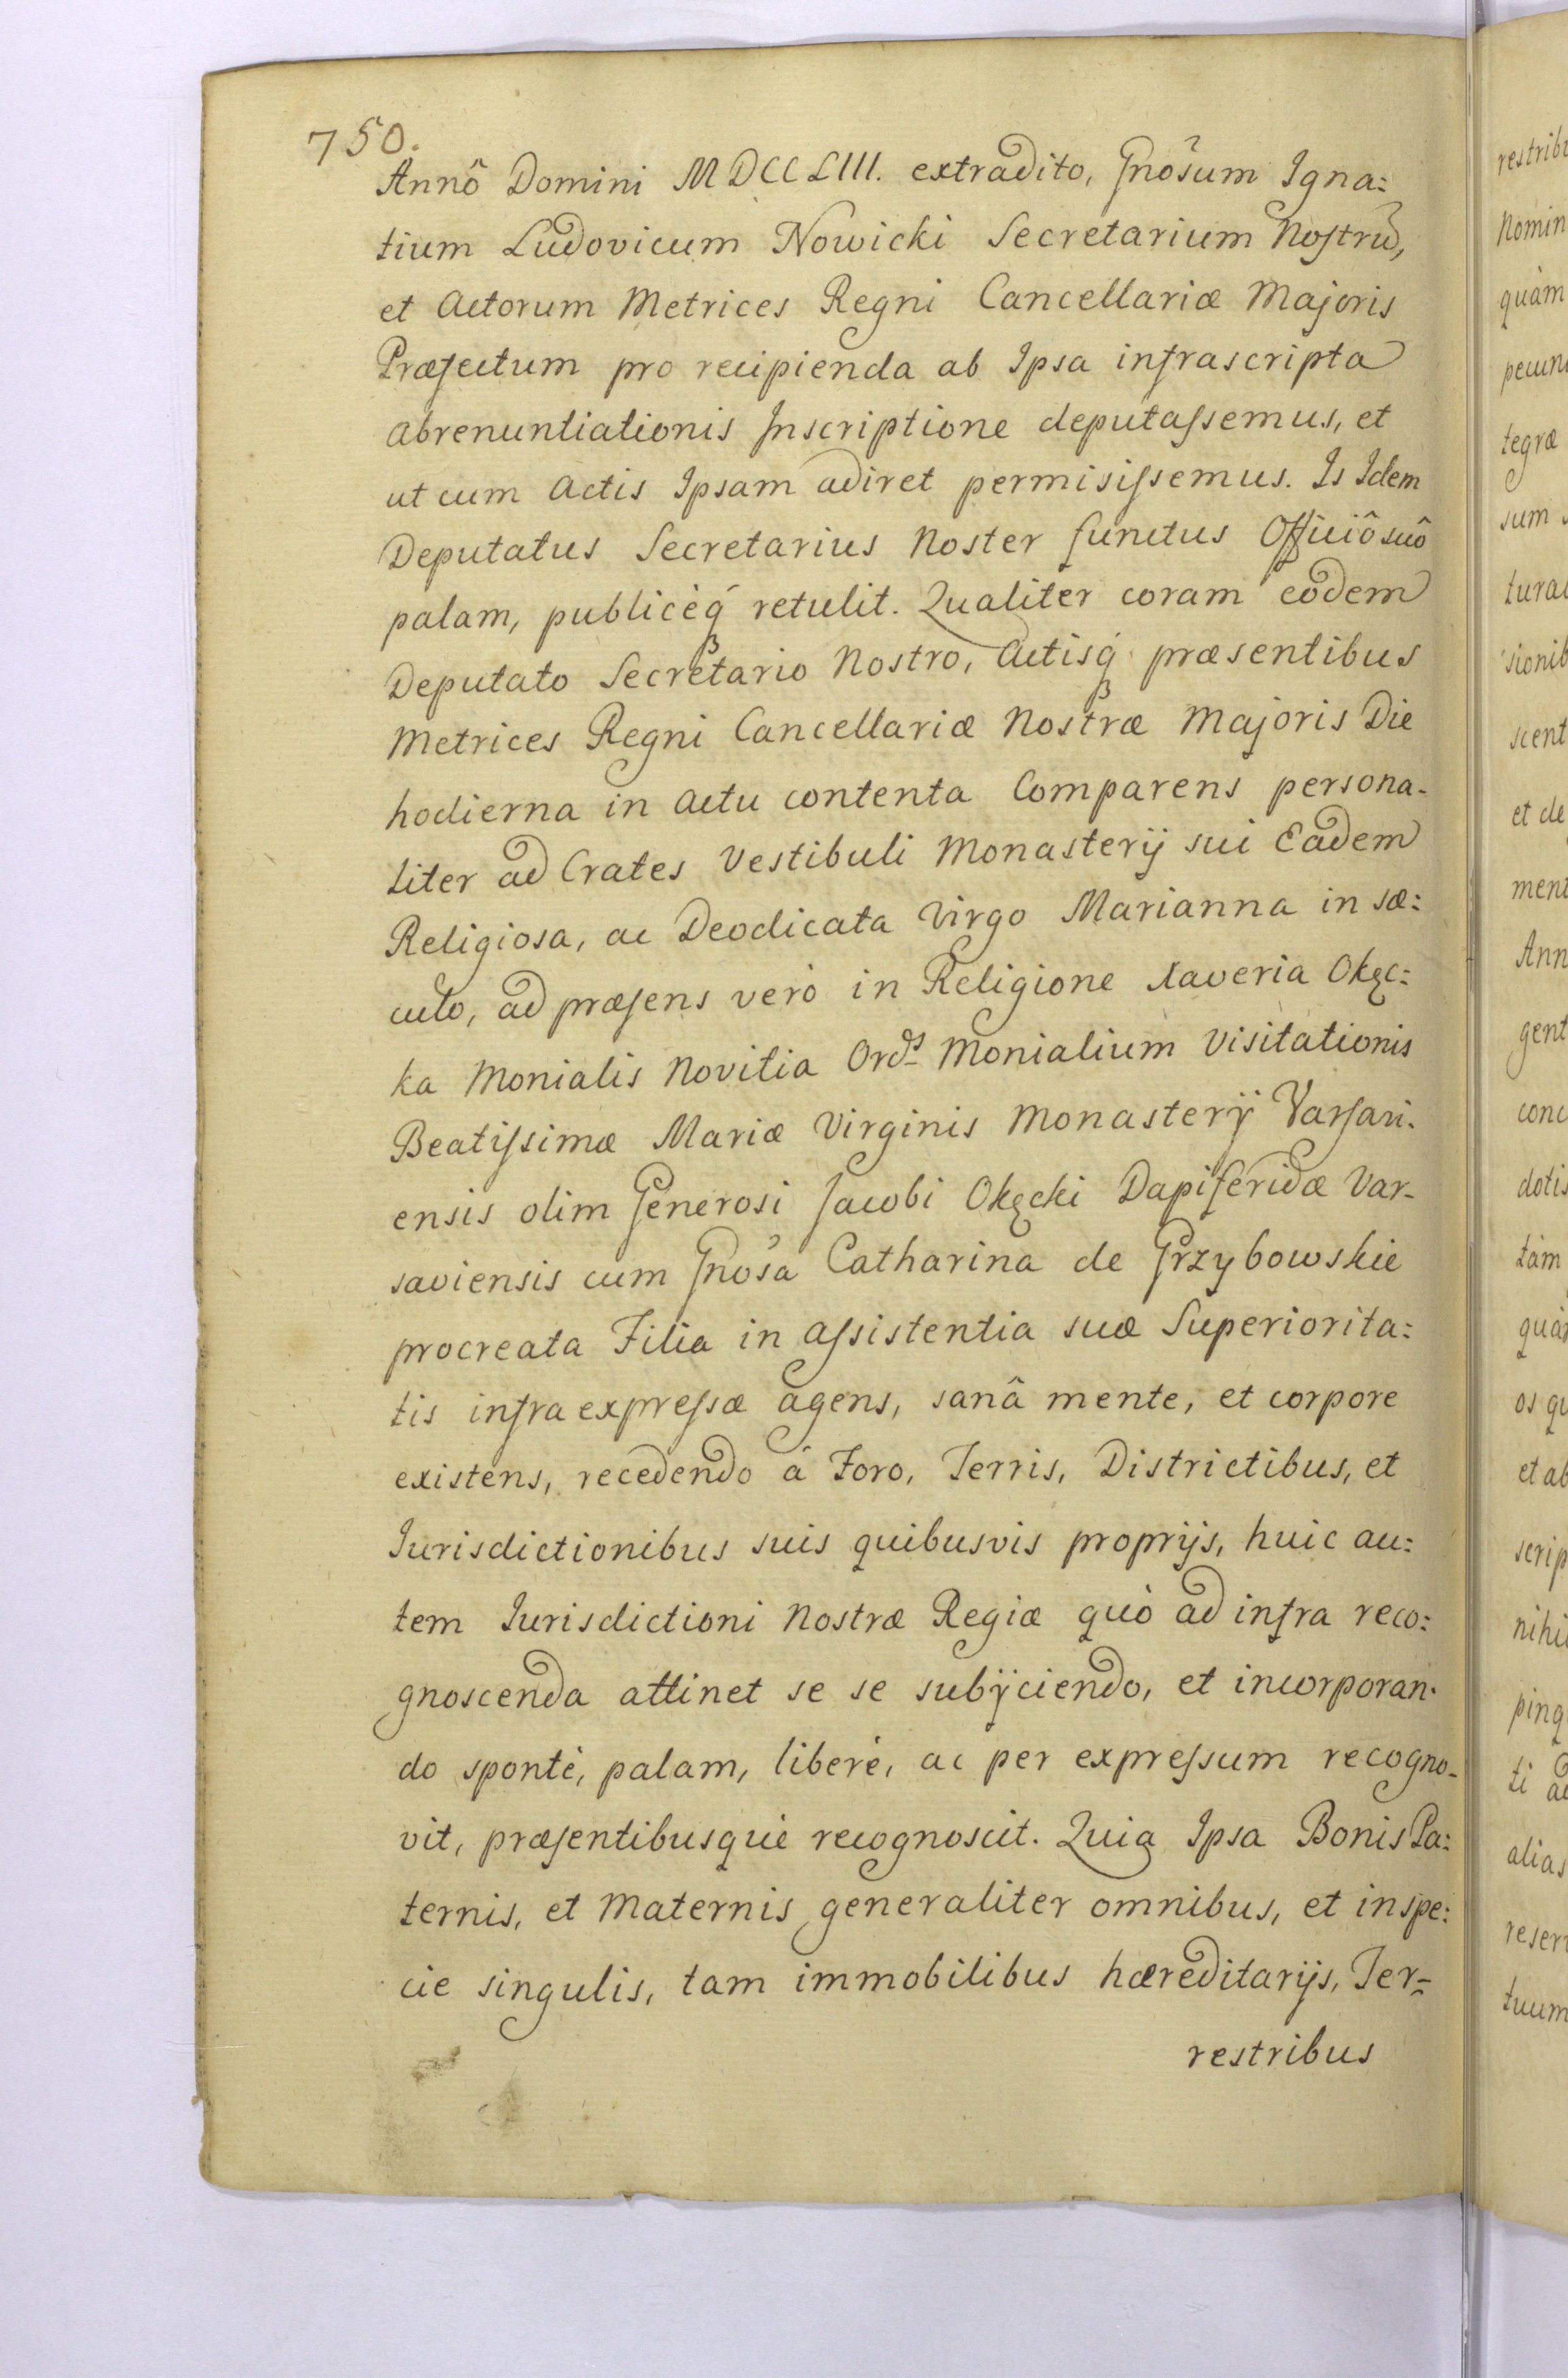 750.
Annô Domini MDCCLIII. extradito, Gnôsum Igna:
tium Ludovicum Nowicki Secretarium Nostrū,
et Actorum Metrices Regni Cancellariæ Majoris
Præfectum pro recipienda ab Ipsa infrascripta
abrenuntiationis Inscriptione deputaſsemus, et
ut cum Actis Ipsam adiret permisiſsemus. Is Idem
Deputatus Secretarius Noster functus Officiô suô
palam, publicèq́ retulit. Qualiter coram eodem
Deputato Secretario Nostro, Actisq́ præsentibus
Metrices Regni Cancellariæ Nostræ Majoris Die
hodierna in Actu contenta Comparens persona-
liter ad Crates Vestibuli Monasterij sui Eadem
Religiosa, ac Deodicata Virgo Marianna in sæ:
culo, ad præſens verò in Religione Xaveria Okęc:
ka Monialis Novitia Ordˢ Monialium Visitationis
Beatiſsimæ Mariæ Virginis Monasterij Varſavi-
ensis olim Generosi Jacobi Okęcki Dapiferidæ Var-
saviensis cum Gnôsa Catharina de Grzybowskie
procreata Filia in aſsistentia suæ Superiorita:
tis infra expreſsæ agens, sanâ mente, et corpore
existens, recedendo à Foro, Terris, Districtibus, et
Jurisdictionibus suis quibusvis proprijs, huic au:
tem Jurisdictioni Nostræ Regiæ quò ad infra reco:
gnoscenda attinet se se subijciendo, et incorporan-
do spontè, palam, liberè, ac per expreſsum recogno-
vit, præſentibusquè recognoscit. Quia Ipsa Bonis Pa:
ternis, et Maternis generaliter omnibus, et inspe:
cie singulis, tam immobilibus hæreditarijs, Ter=
restribus